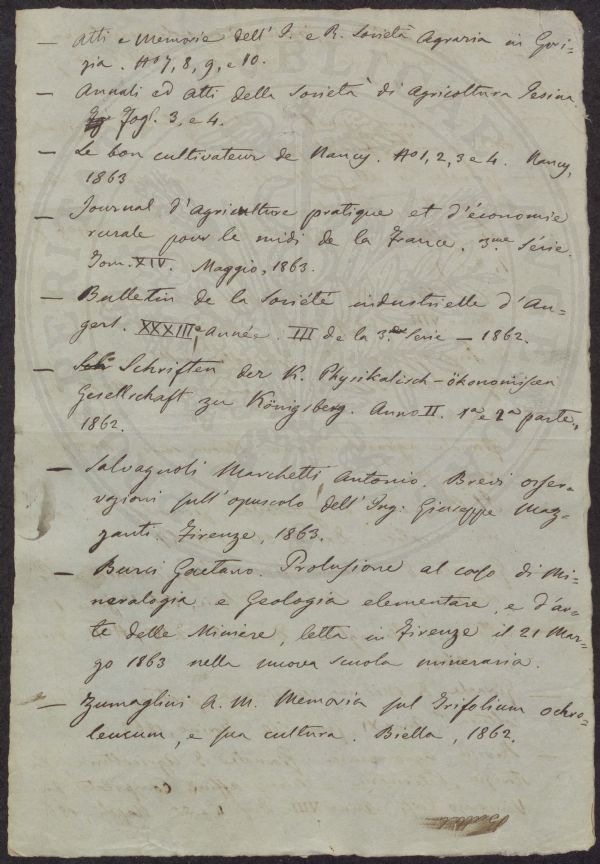 — Atti e Memorie dell' I. e R. Società Agraria in Gori-
zia. No 7, 8, 9, e 10.
— Annali ed Atti della Società di Agricoltura Jesina.
Fogl. 3, e 4.
— Le bon cultivateur de Nancy. No 1, 2, 3 e 4. Nancy,
1863
— Journal d'agriculture pratique et d'économie
rurale pour le midi de la France. 3me Série.
Tom. XIV. Maggio, 1863.
— Bulletin de la Société industrielle d'An-
gers. XXXIIIe Année. III de la 3me Serie — 1862.
— Schriften der K. Physikalisch-ökonomischen
Gesellschaft zu Königsberg. Anno II. 1a e 2a parte,
1862.
— Salvagnoli Marchetti Antonio. Brevi osser-
vazioni sull'opuscolo dell'Ing: Giuseppe Maz-
zanti. Firenze, 1863.
— Burci Gaetano. Prolusione al corso di Mi-
neralogia e Geologia elementare, e d'ar-
te delle Miniere, letta in Firenze il 21 Mar-
zo 1863 nella nuova scuola mineraria.
— Zumaglini A. M. Memoria sul Trifolium ochro-
leucum, e sua cultura. Biella, 1862.